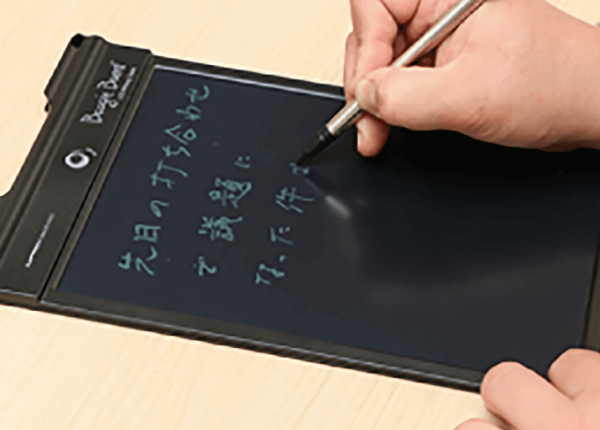 Boogie Board
先日の打ち合わせ
で議題に
なった件